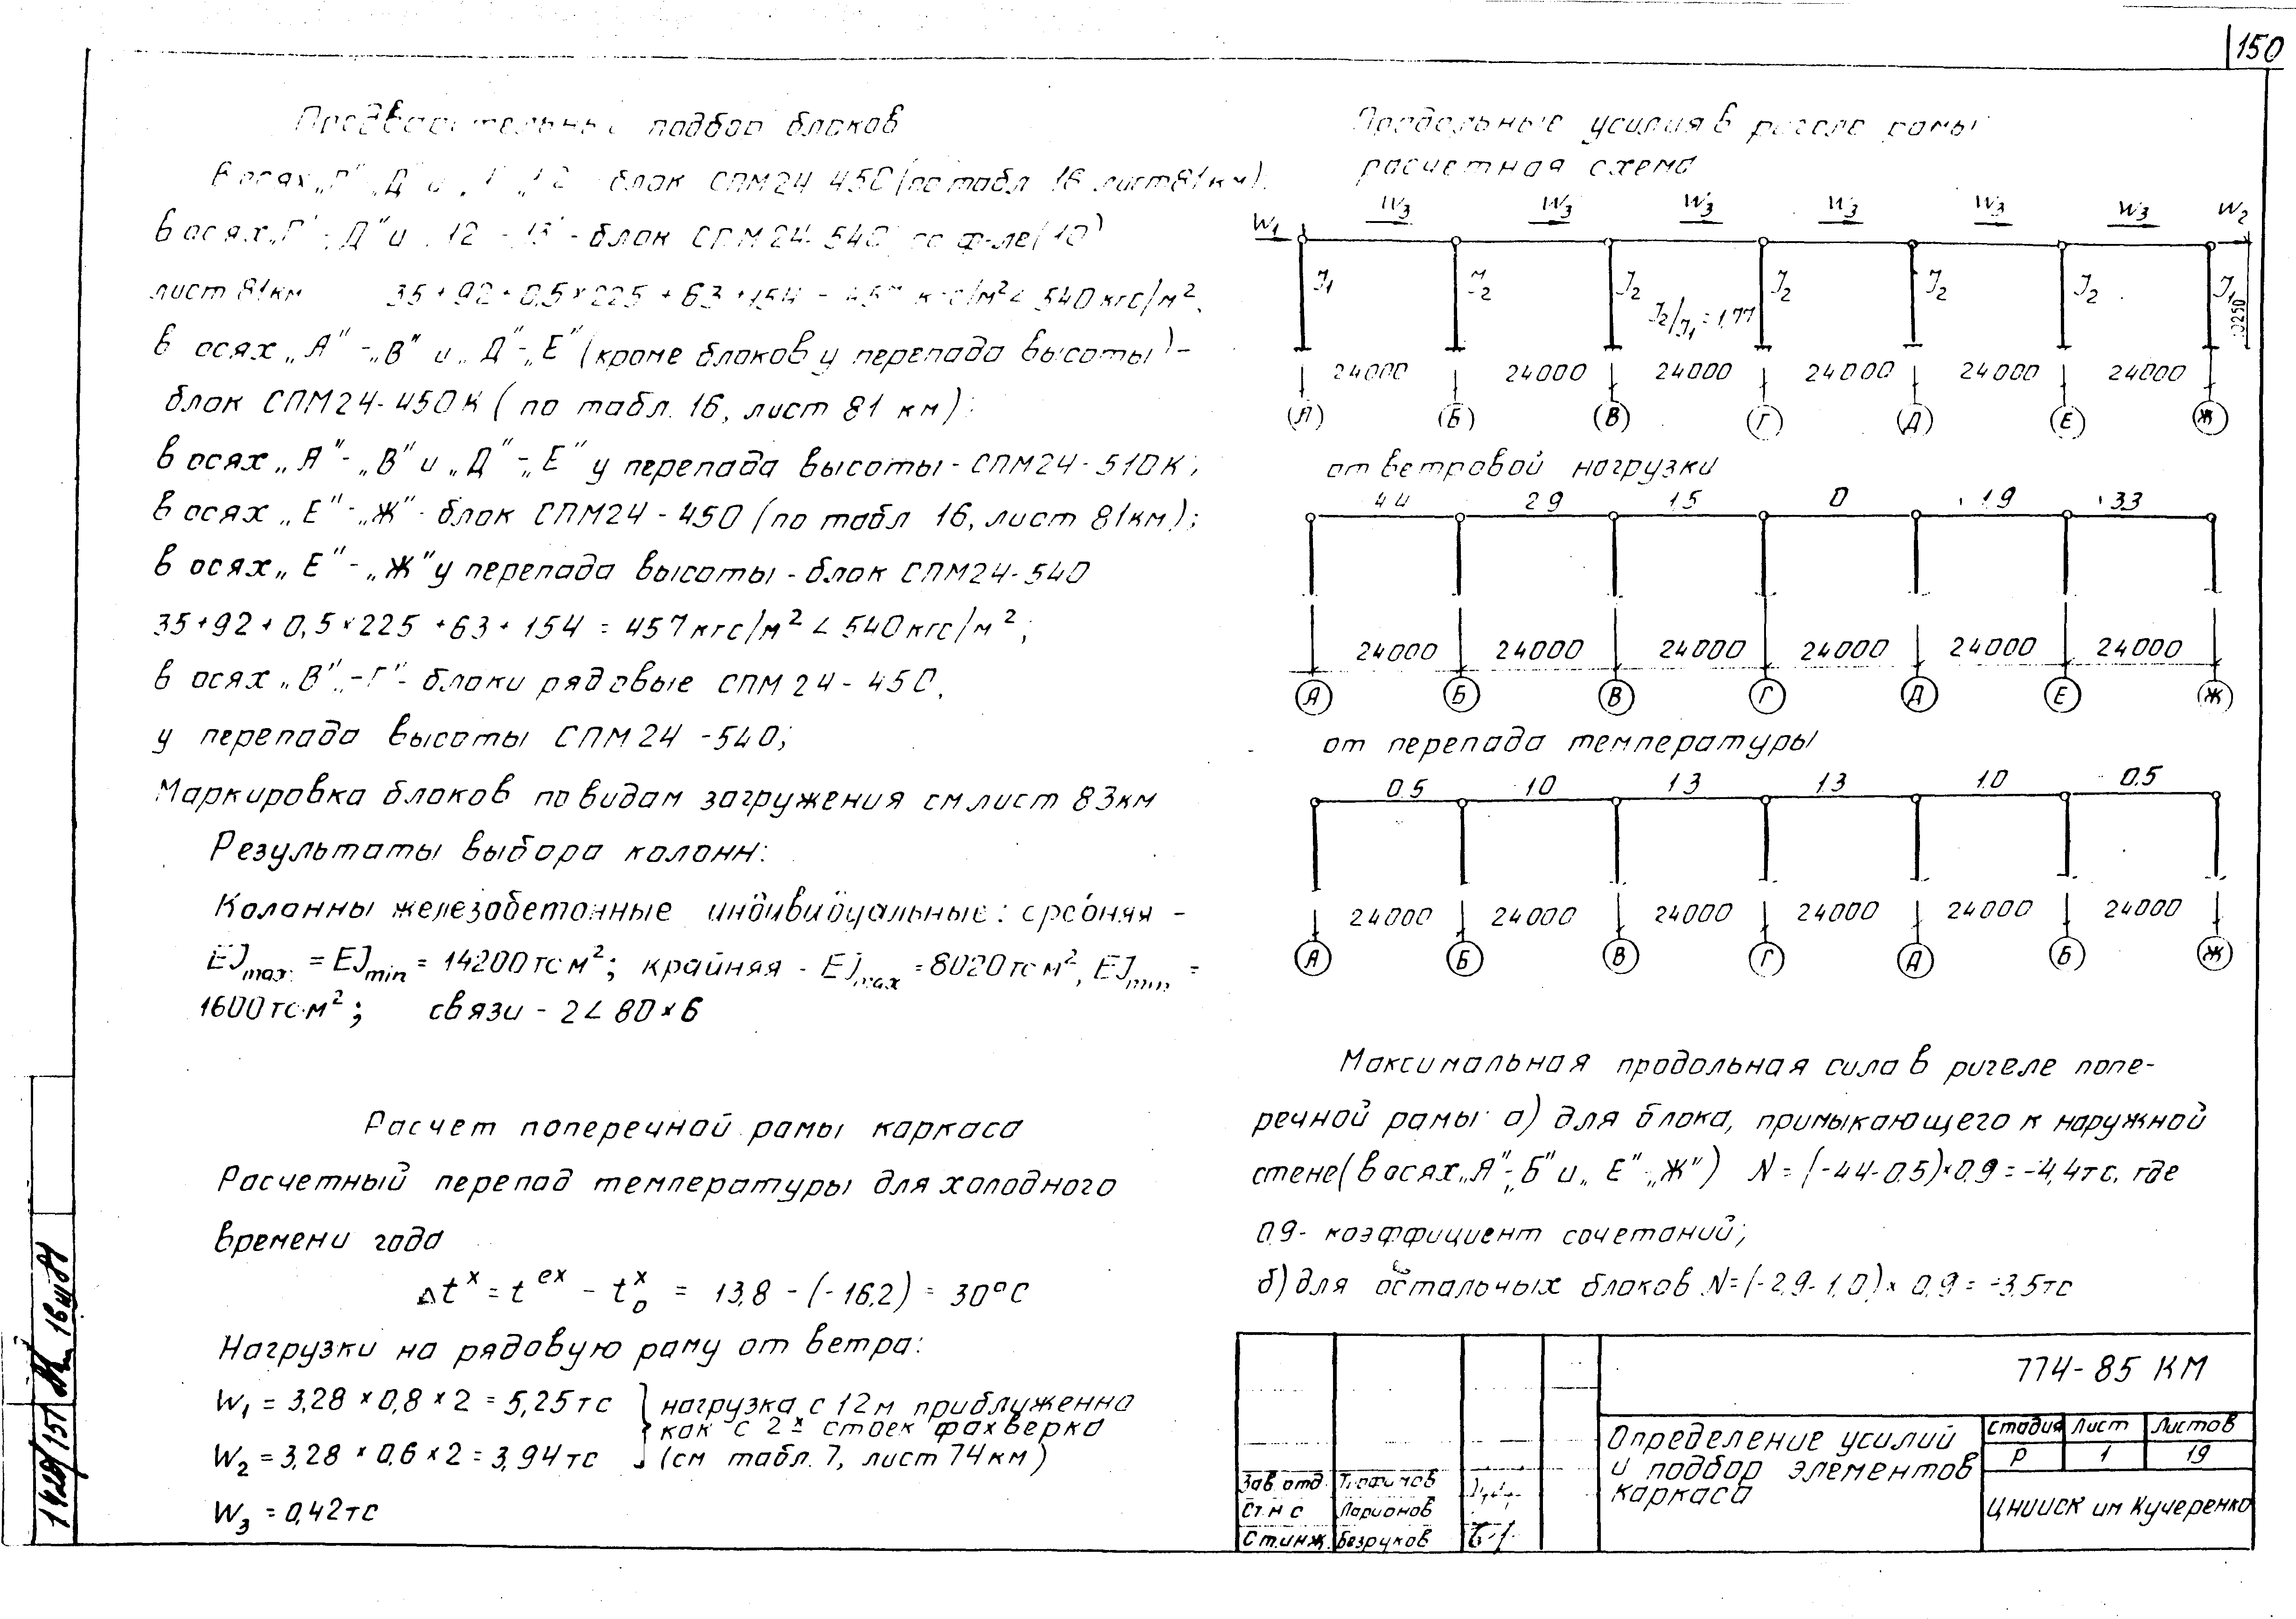 150
подбор блоков
блок СПМ24-450 (по табл 16 лист 81км).
в осях „Г"-„Д" и „12"-„13" - блок СПМ24-540 по ф-ле (10)
лист 81км 35+92+0,5×225+63+154 = 457 кгс/м² < 540 кгс/м²,
в осях „А"-„В" и „Д"-„Е" (кроме блоков у перепада высоты) -
блок СПМ24-450К (по табл. 16, лист 81 км);
в осях „А"-„В" и „Д"-„Е" у перепада высоты - СПМ24-510К;
в осях „Е"-„Ж" - блок СПМ24-450 (по табл 16, лист 81км);
в осях „Е"-„Ж" у перепада высоты - блок СПМ24-540
35+92+0,5×225+63+154 = 457 кгс/м² < 540 кгс/м²;
в осях „В"-„Г" - блоки рядовые СПМ24-450,
у перепада высоты СПМ24-540;
Маркировка блоков по видам загружения см лист 83км
Результаты выбора колонн:
Колонны железобетонные индивидуальные: средняя -
EJmax = EJmin = 14200 тс м²; крайняя - EJmax = 8020 тс м², EJmin =
1600 тс·м²; связи - 2∠80×6
Расчет поперечной рамы каркаса
Расчетный перепад температуры для холодного
времени года
Δtˣ = tᵉˣ - t₀ˣ = 13,8 - (-16,2) = 30°С
Нагрузки на рядовую раму от ветра:
W₁ = 3,28 × 0,8 × 2 = 5,25 тс } нагрузка с 12м приближенно
как с 2ˣ стоек фахверка
W₂ = 3,28 × 0,6 × 2 = 3,94 тс (см табл. 7, лист 74км)
W₃ = 0,42 тс
Продольные усилия в ригеле рамы
расчетная схема
W₁ W₃ W₃ W₃ W₃ W₃ W₃ W₂
J₁ J₂ J₂ J₂ J₂ J₂ J₁
J₂/J₁ = 1,77
24000 24000 24000 24000 24000 24000
(А) (Б) (В) (Г) (Д) (Е) (Ж)
от ветровой нагрузки
4.4 2.9 1.5 0 1.9 3.3
24000 24000 24000 24000 24000 24000
А Б В Г Д Е Ж
от перепада температуры
0.5 1.0 1.3 1.3 1.0 0.5
24000 24000 24000 24000 24000 24000
А Б В Г Д Б Ж
Максимальная продольная сила в ригеле попе-
речной рамы: а) для блока, примыкающего к наружной
стене (в осях „А"-„Б" и „Е"-„Ж") N = (-4.4-0.5)×0.9 = -4,4тс, где
0.9 - коэффициент сочетаний;
б) для остальных блоков N = (-2.9-1,0)×0,9 = -3,5тс
774-85 КМ
Определение усилий
и подбор элементов
каркаса
стадия лист листов
Р 1 19
ЦНИИСК им Кучеренко
Зав отд.
Ст. н с Ларионов
Ст.инж. Безруков